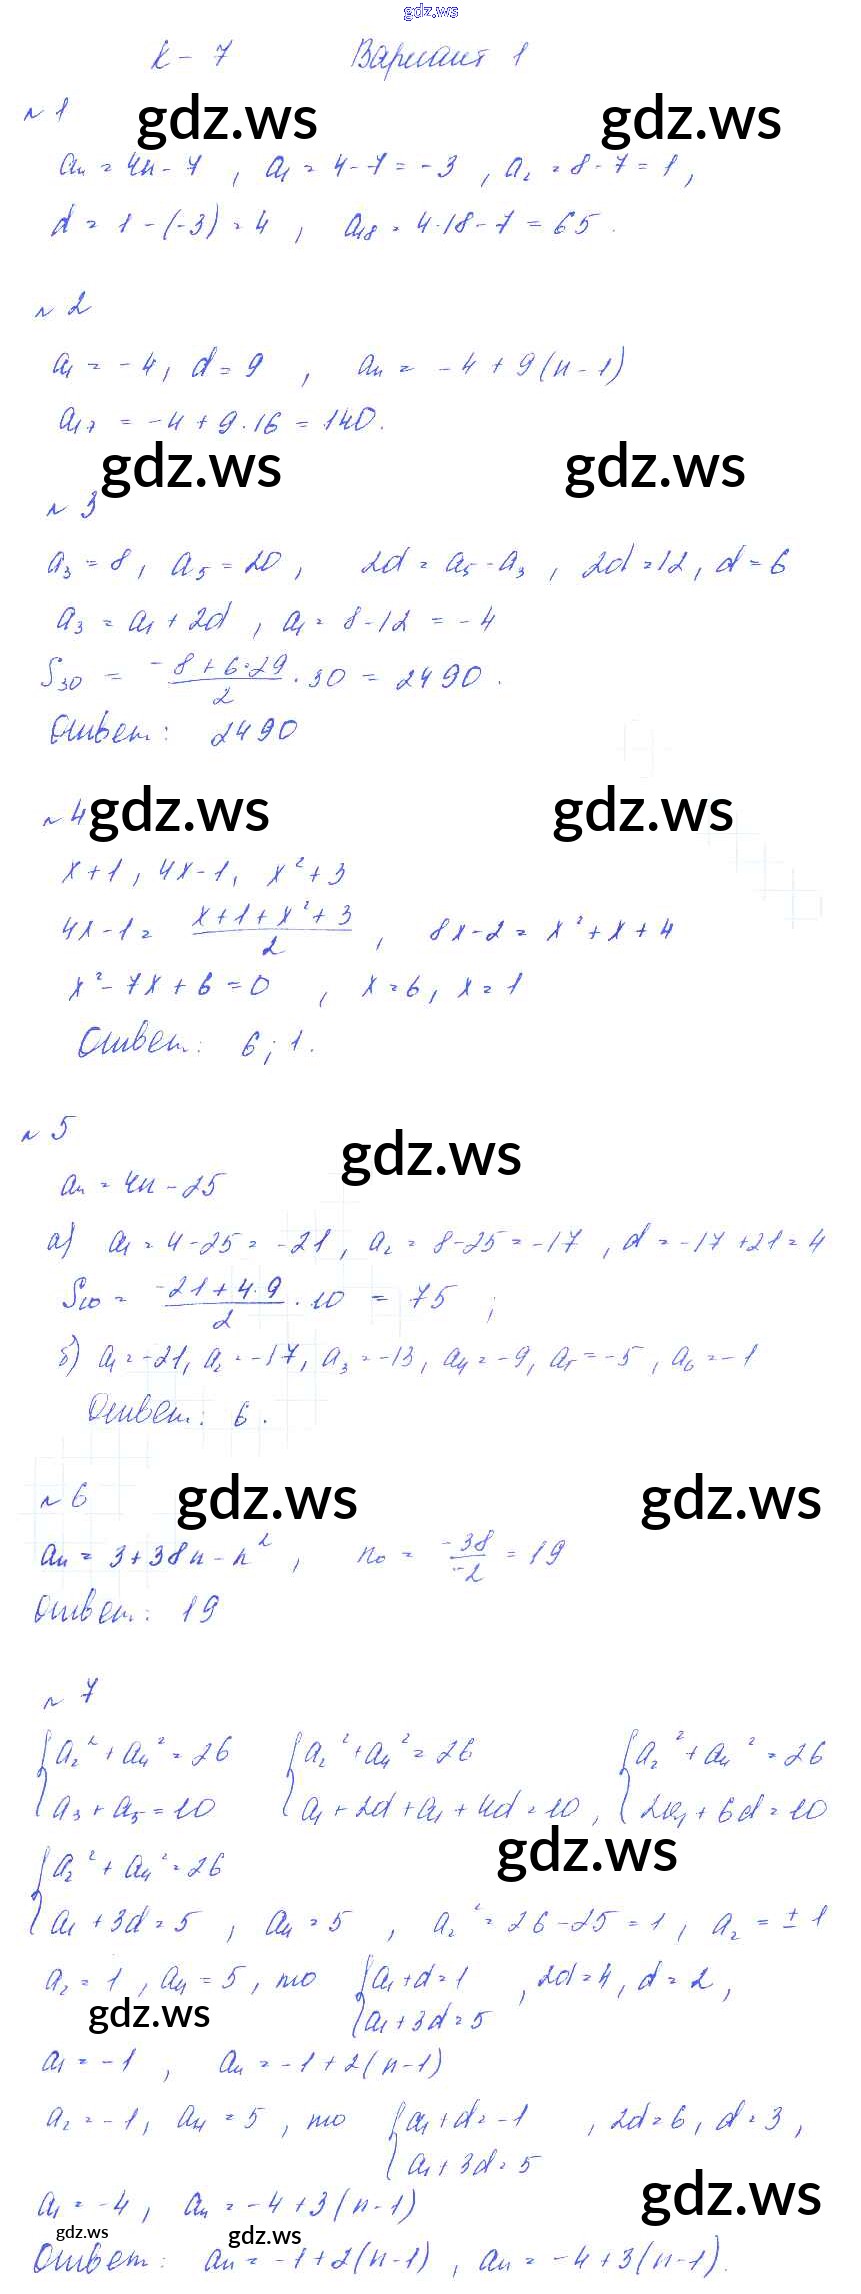 gdz.ws
К – 7 Вариант 1
№ 1
gdz.ws gdz.ws
aₙ = 4n – 7, a₁ = 4 – 7 = –3, a₂ = 8 – 7 = 1,
d = 1 – (–3) = 4, a₁₈ = 4·18 – 7 = 65.
№ 2
a₁ = –4, d = 9, aₙ = –4 + 9(n – 1)
a₁₇ = –4 + 9·16 = 140.
gdz.ws gdz.ws
№ 3
a₃ = 8, a₅ = 20, 2d = a₅ – a₃, 2d = 12, d = 6
a₃ = a₁ + 2d, a₁ = 8 – 12 = –4
S₃₀ = (–8 + 6·29)/2 · 30 = 2490.
Ответ: 2490
№ 4 gdz.ws gdz.ws
x + 1, 4x – 1, x² + 3
4x – 1 = (x + 1 + x² + 3)/2, 8x – 2 = x² + x + 4
x² – 7x + 6 = 0, x = 6, x = 1
Ответ: 6; 1.
№ 5
gdz.ws
aₙ = 4n – 25
а) a₁ = 4 – 25 = –21, a₂ = 8 – 25 = –17, d = –17 + 21 = 4
S₁₀ = (–21 + 4·9)/2 · 10 = 75;
б) a₁ = –21, a₂ = –17, a₃ = –13, a₄ = –9, a₅ = –5, a₆ = –1
Ответ: 6.
№ 6 gdz.ws gdz.ws
aₙ = 3 + 38n – n², n₀ = –38/–2 = 19
Ответ: 19
№ 7
{a₂² + a₄² = 26 {a₂² + a₄² = 26 {a₂² + a₄² = 26
{a₃ + a₅ = 10 {a₁ + 2d + a₁ + 4d = 10, {2a₁ + 6d = 10
gdz.ws
{a₂² + a₄² = 26
{a₁ + 3d = 5, a₄ = 5, a₂² = 26 – 25 = 1, a₂ = ± 1
a₂ = 1, a₄ = 5, то {a₁ + d = 1, 2d = 4, d = 2,
gdz.ws {a₁ + 3d = 5
a₁ = –1, aₙ = –1 + 2(n – 1)
a₂ = –1, a₄ = 5, то {a₁ + d = –1, 2d = 6, d = 3,
{a₁ + 3d = 5
gdz.ws
a₁ = –4, aₙ = –4 + 3(n – 1)
gdz.ws gdz.ws
Ответ: aₙ = –1 + 2(n – 1), aₙ = –4 + 3(n – 1).